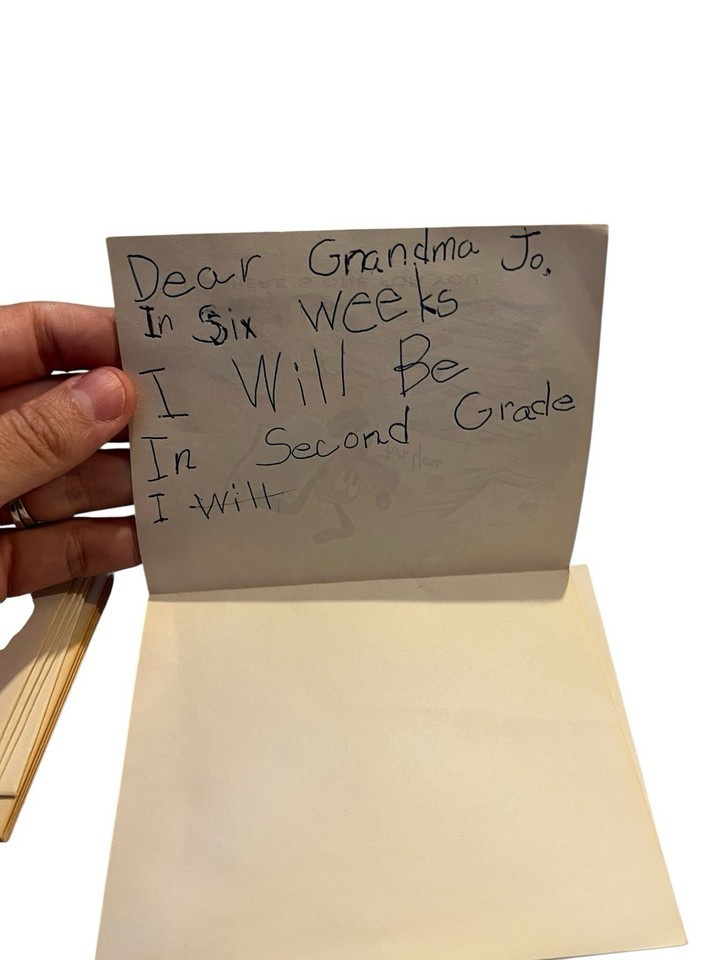 Dear Grandma Jo.
In Six weeks
I Will Be
In Second Grade
I Will